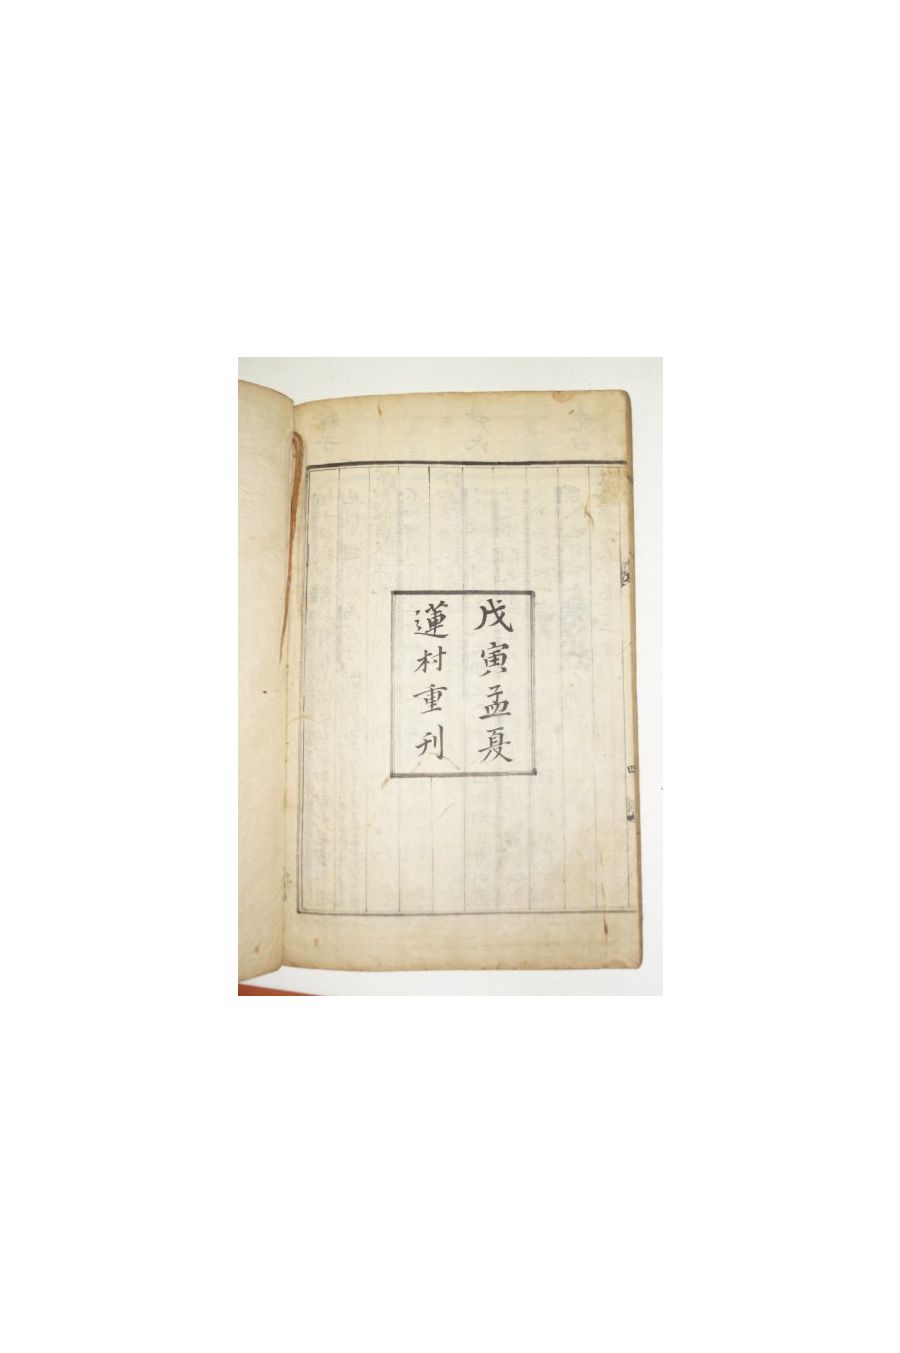 戊寅孟夏
蓮村重刋